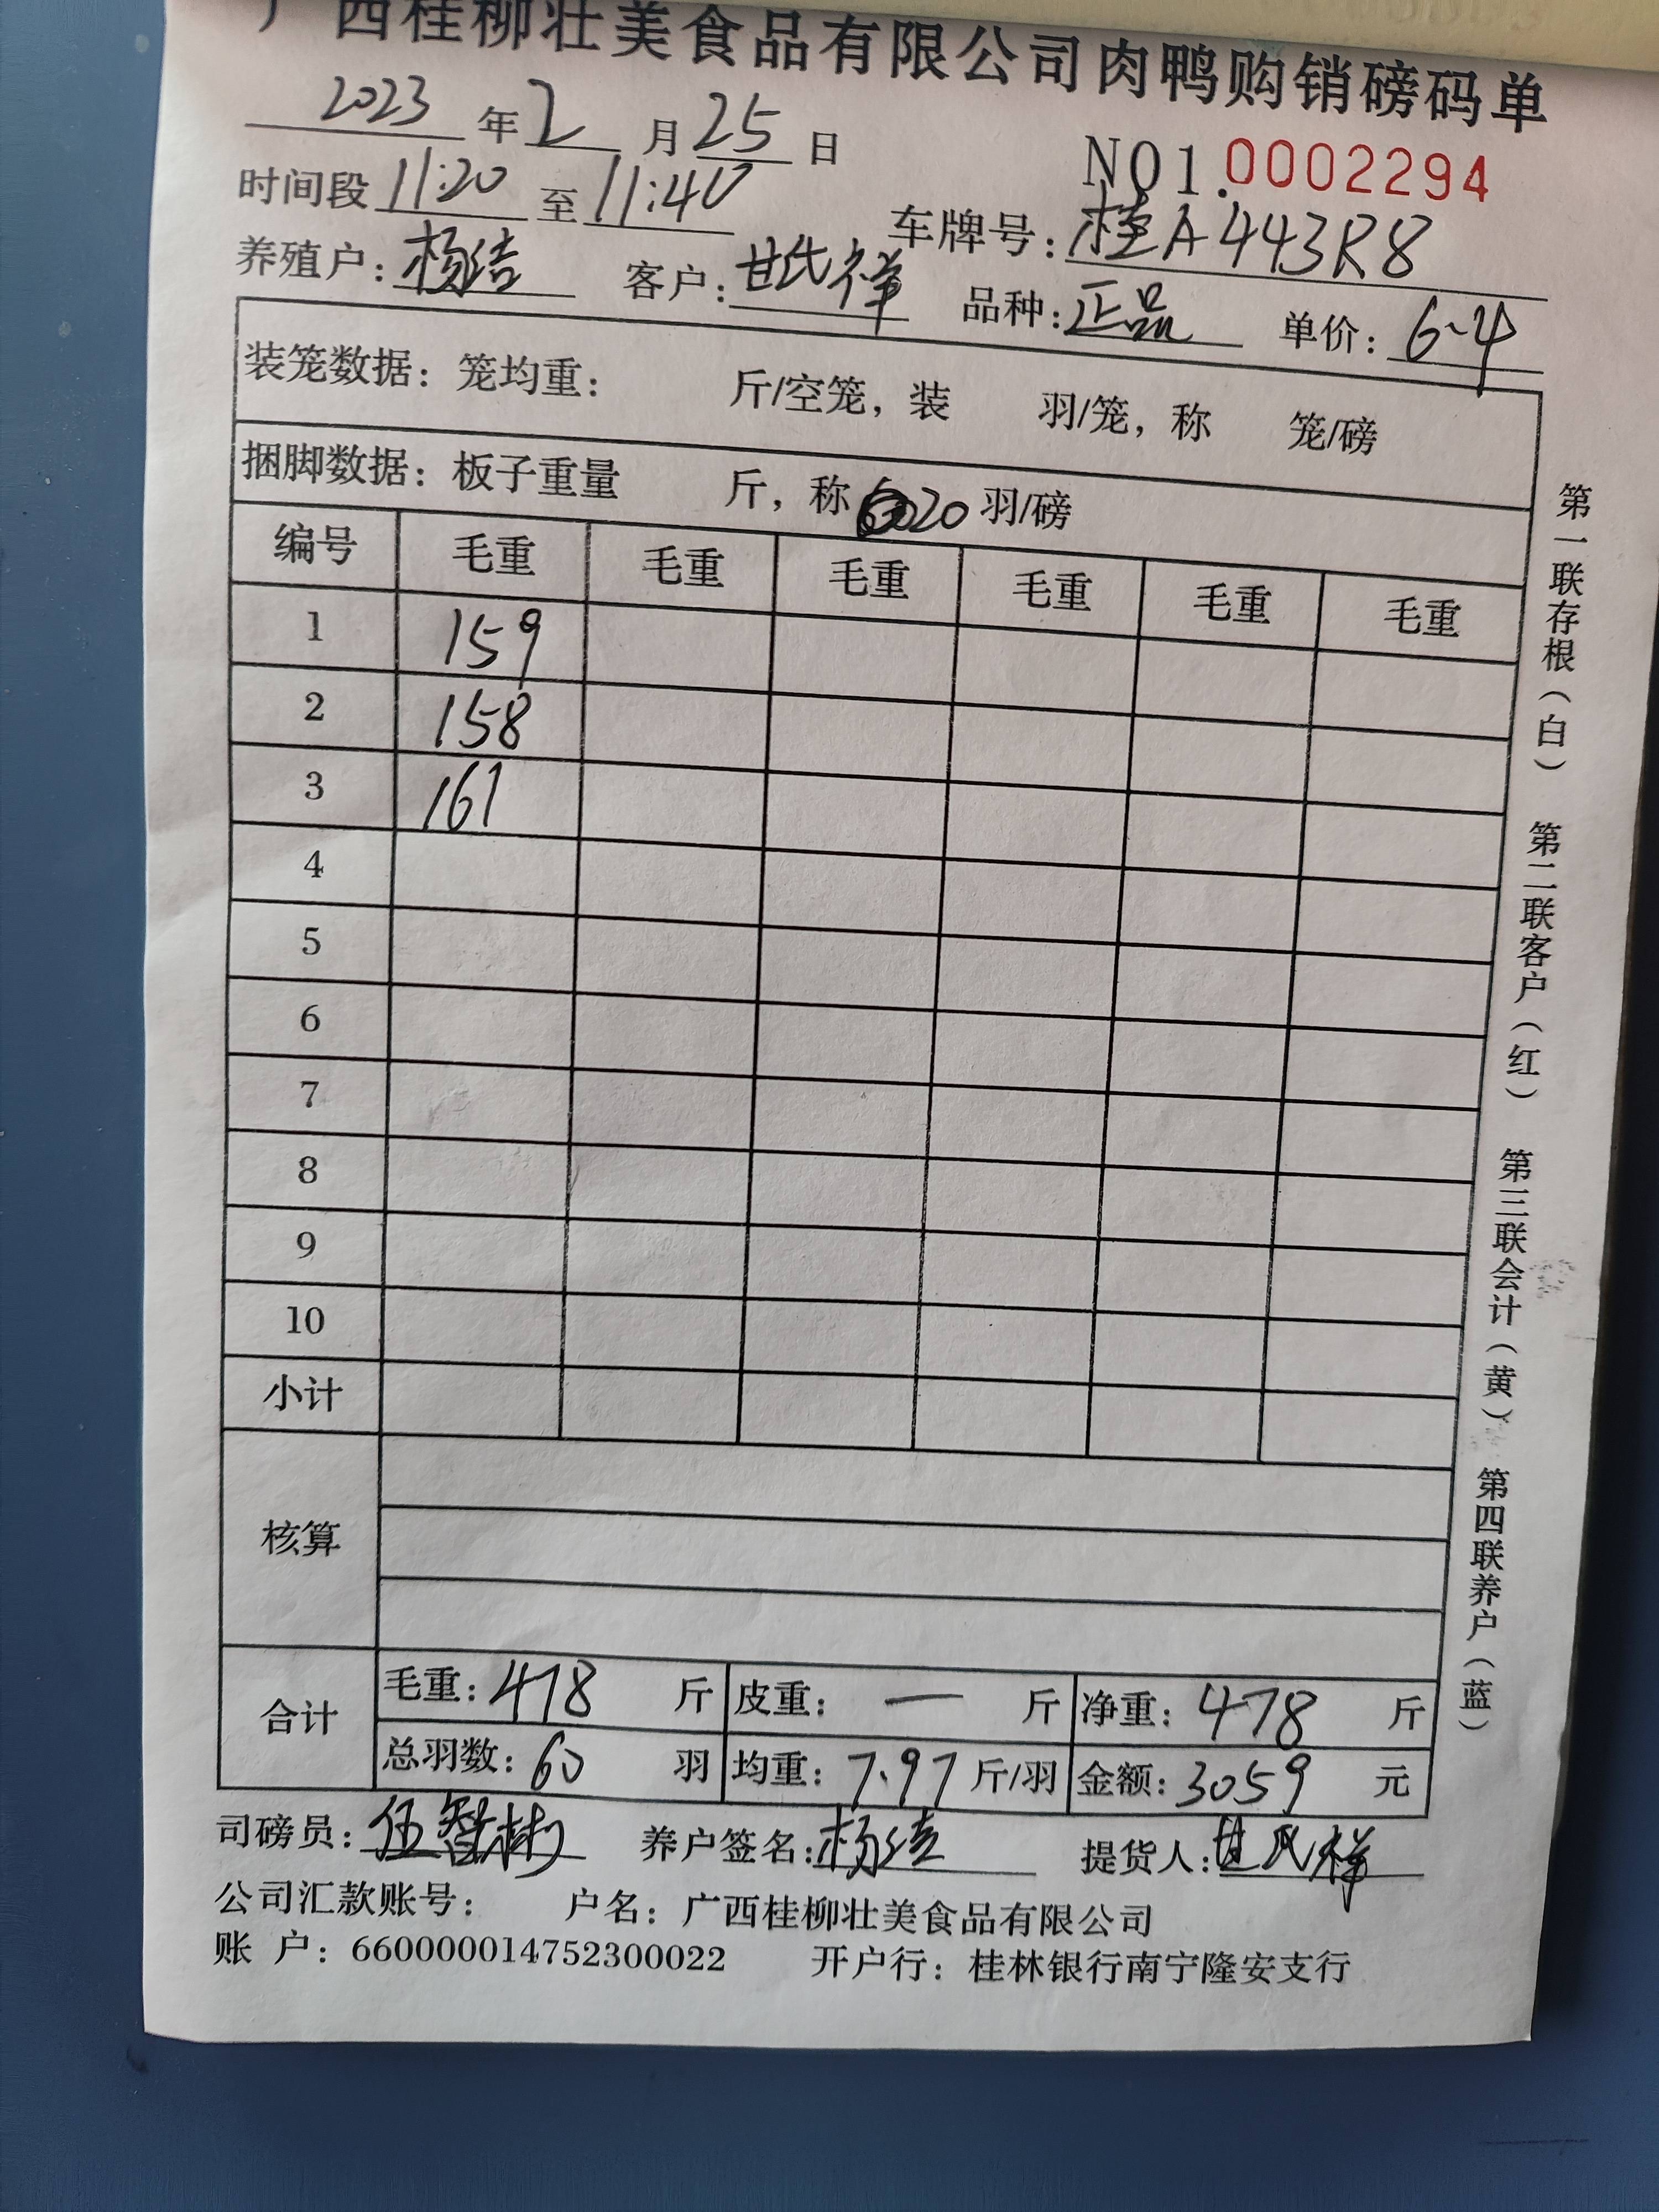 广西桂柳壮美食品有限公司肉鸭购销磅码单
2023 年 2 月 25 日
NO1.0002294
时间段 11:20 至 11:40 车牌号:桂A443R8
养殖户:杨结 客户:甘氏祥 品种:正品 单价:6-4
装笼数据:笼均重: 斤/空笼,装 羽/笼,称 笼/磅
捆脚数据:板子重量 斤,称 20 羽/磅
编号 毛重 毛重 毛重 毛重 毛重 毛重
1 159
2 158
3 161
4
5
6
7
8
9
10
小计
核算
合计 毛重:478 斤 皮重:一 斤 净重:478 斤
总羽数:60 羽 均重:7.97 斤/羽 金额:3059 元
司磅员:伍智彬 养户签名:杨结 提货人:甘氏祥
公司汇款账号: 户名:广西桂柳壮美食品有限公司
账 户:660000014752300022 开户行:桂林银行南宁隆安支行
第一联存根(白) 第二联客户(红) 第三联会计(黄) 第四联养户(蓝)